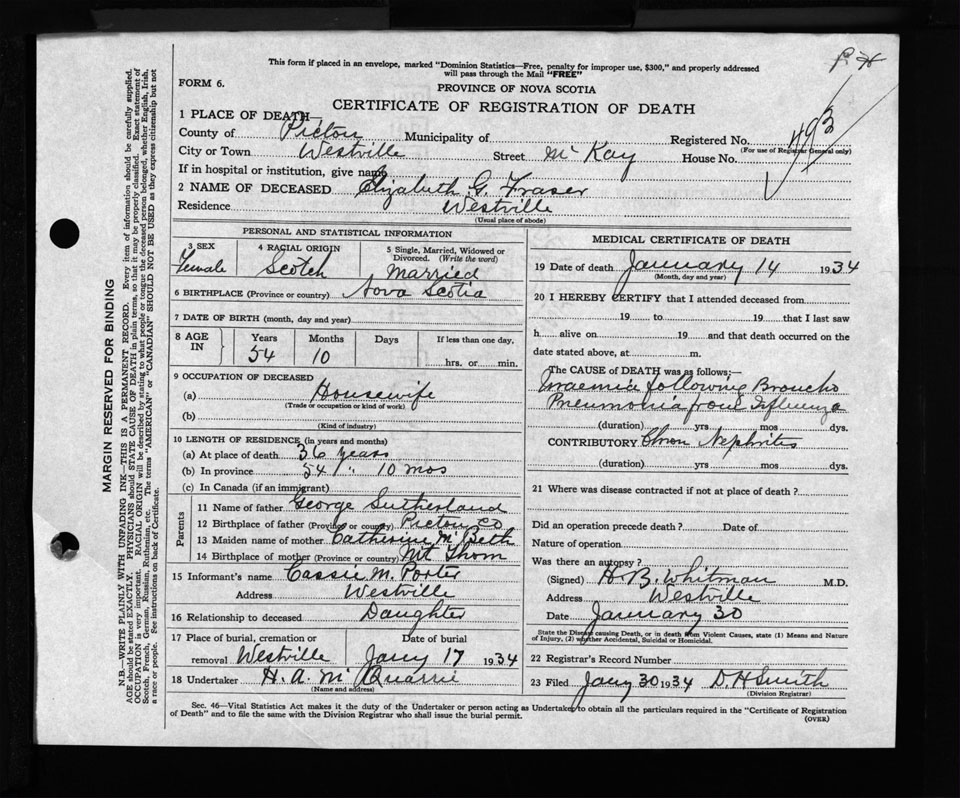 This form if placed in an envelope, marked "Dominion Statistics—Free, penalty for improper use, $300," and properly addressed
will pass through the Mail "FREE"
FORM 6.
PROVINCE OF NOVA SCOTIA
CERTIFICATE OF REGISTRATION OF DEATH
1 PLACE OF DEATH—
County of Pictou Municipality of Registered No. 493
(For use of Registrar General only)
City or Town Westville Street McKay House No.
If in hospital or institution, give name
2 NAME OF DECEASED Elizabeth G. Fraser
Residence Westville
(Usual place of abode)
PERSONAL AND STATISTICAL INFORMATION
3 SEX 4 RACIAL ORIGIN 5 Single, Married, Widowed or
Divorced. (Write the word)
Female Scotch Married
6 BIRTHPLACE (Province or country) Nova Scotia
7 DATE OF BIRTH (month, day and year)
8 AGE IN Years Months Days If less than one day,
54 10 hrs. or min.
9 OCCUPATION OF DECEASED
(a) Housewife
(Trade or occupation or kind of work)
(b)
(Kind of industry)
10 LENGTH OF RESIDENCE (in years and months)
(a) At place of death 36 years
(b) In province 54 " 10 mos
(c) In Canada (if an immigrant)
Parents
11 Name of father George Sutherland
12 Birthplace of father (Province or country) Pictou Co
13 Maiden name of mother Catherine McBeth
14 Birthplace of mother (Province or country) Mt Thom
15 Informant's name Cassie M. Porter
Address Westville
16 Relationship to deceased Daughter
17 Place of burial, cremation or Date of burial
removal Westville Jany 17 1934
18 Undertaker H. A. McQuarrie
(Name and address)
MEDICAL CERTIFICATE OF DEATH
19 Date of death January 14 1934
(Month, day and year)
20 I HEREBY CERTIFY that I attended deceased from
19 to 19 that I last saw
h alive on 19 and that death occurred on the
date stated above, at m.
The CAUSE of DEATH was as follows:—
Uraemia following Broncho
Pneumonia from Influenza
(duration) yrs mos dys.
CONTRIBUTORY Chron Nephrites
(duration) yrs mos dys.
21 Where was disease contracted if not at place of death?
Did an operation precede death? Date of
Nature of operation
Was there an autopsy?
(Signed) H. B. Whitman M.D.
Address Westville
Date January 30
State the Disease causing Death, or in death from Violent Causes, state (1) Means and Nature
of Injury, (2) whether Accidental, Suicidal or Homicidal.
22 Registrar's Record Number
23 Filed Jany 30 1934 D. H Smith
(Division Registrar)
Sec. 46—Vital Statistics Act makes it the duty of the Undertaker or person acting as Undertaker to obtain all the particulars required in the "Certificate of Registration
of Death" and to file the same with the Division Registrar who shall issue the burial permit.
(OVER)
MARGIN RESERVED FOR BINDING
N.B.—WRITE PLAINLY WITH UNFADING INK—THIS IS A PERMANENT RECORD. Every item of information should be carefully supplied.
AGE should be stated EXACTLY. PHYSICIANS should STATE CAUSE OF DEATH in plain terms, so that it may be properly classified. Exact statement of
OCCUPATION is very important. RACIAL ORIGIN will be described by stating to what people or tongue the deceased person belonged, whether English, Irish,
Scotch, French, German, Russian, Ruthenian, etc. The terms "AMERICAN" or "CANADIAN" SHOULD NOT BE USED as they express citizenship but not
a race or people. See instructions on back of Certificate.